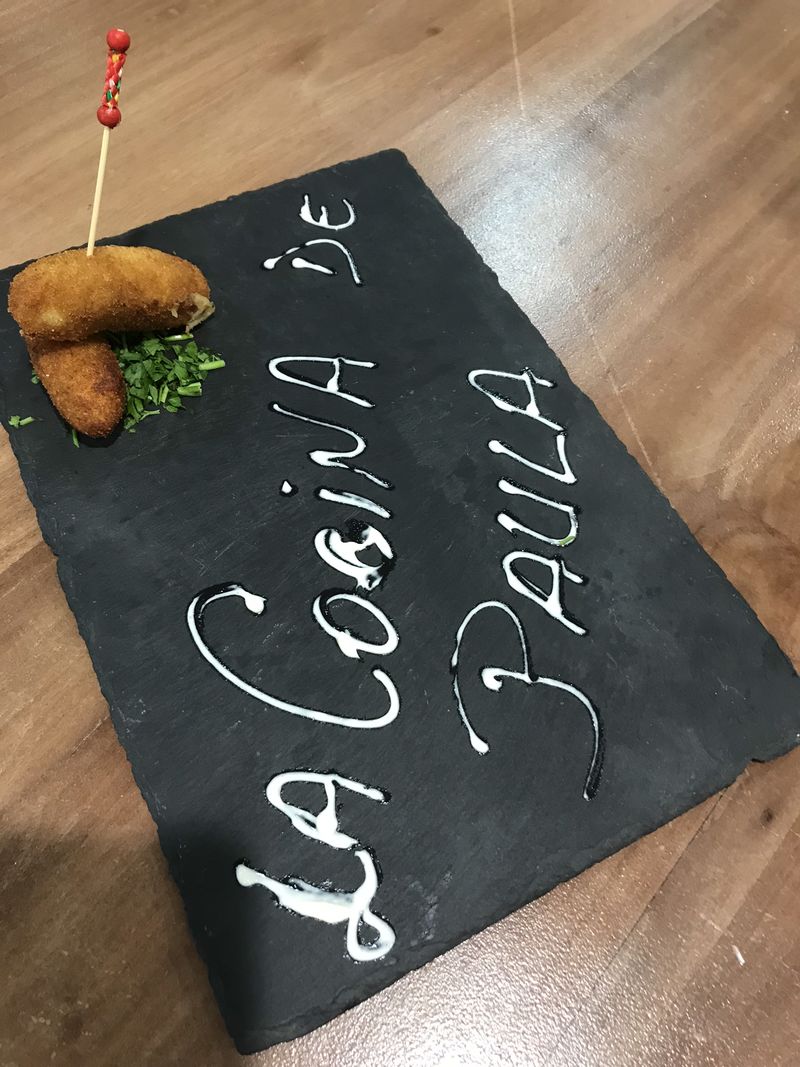 LA COCINA DE
PAULA